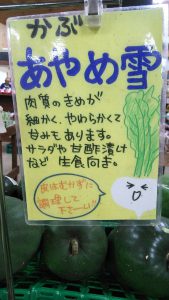 かぶ
あやめ雪
肉質のきめが
細かく、やわらかくて
甘みであります。
サラダや甘酢漬け
など 生食向き。
皮はむかずに
調理して
下さーい